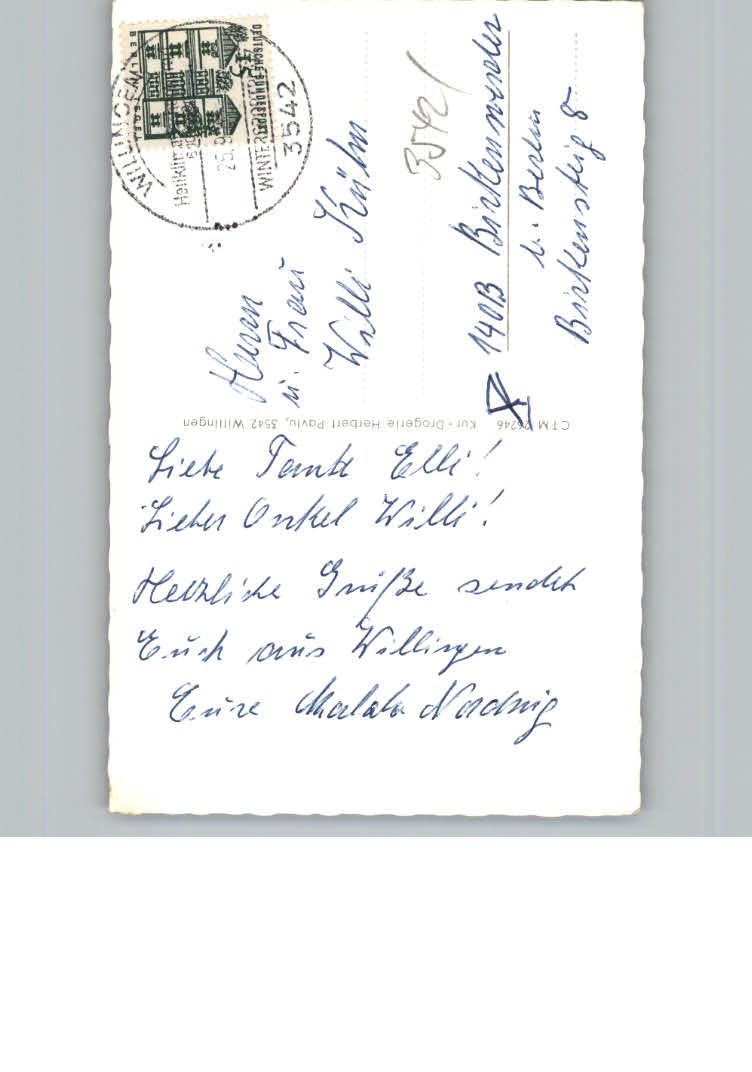 Liebe Tante Elli!
Lieber Onkel Willi!
Herzliche Grüße sendet
Euch aus Willingen
Eure
Herrn
u. Frau
Willi Kühn
3542
140B Birkenwerder
b. Berlin
Birkensteig 8
CTM 26246 Kur-Drogerie Herbert Pavlu, 3542 Willingen
DEUTSCHE BUNDESPOST
15
BERLIN
TEGEL
WILLINGEN
3542